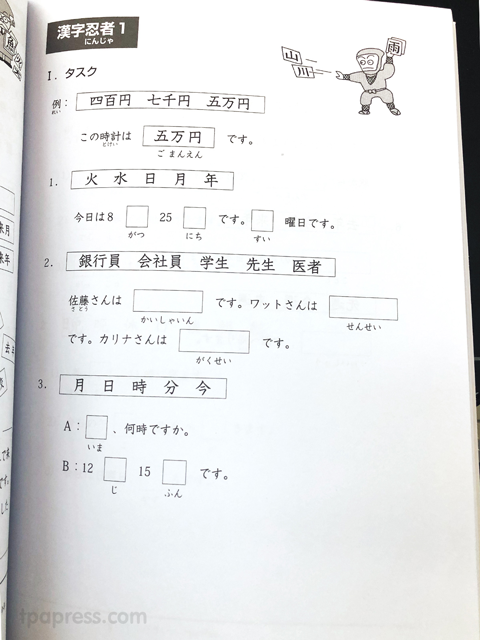 漢字忍者1
にんじゃ
山
川
雨
魚
I. タスク
例：
れい
四百円 七千円 五万円
この時計は 五万円 です。
とけい
ご まんえん
1. 火 水 日 月 年
今日は8 25 です。 曜日です。
がつ にち すい
2. 銀行員 会社員 学生 先生 医者
佐藤さんは です。ワットさんは
さとう
かいしゃいん せんせい
です。カリナさんは です。
がくせい
3. 月 日 時 分 今
A： 、何時ですか。
いま
B：12 15 です。
じ ふん
来月
来年
tpapress.com